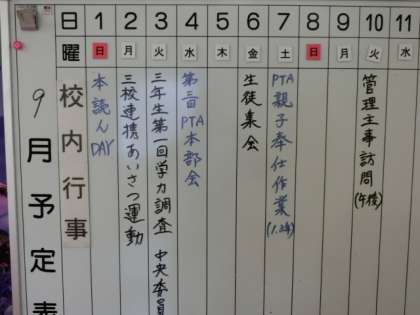 日 1 2 3 4 5 6 7 8 9 10 11
曜 日 月 火 水 木 金 土 日 月 火 水
9月予定表
校内行事
本読んDAY
三校連携あいさつ運動
三年生第一回学力調査 中央委員
第三回PTA本部会
生徒集会
PTA親子奉仕作業(1.2年)
管理主事訪問(午後)